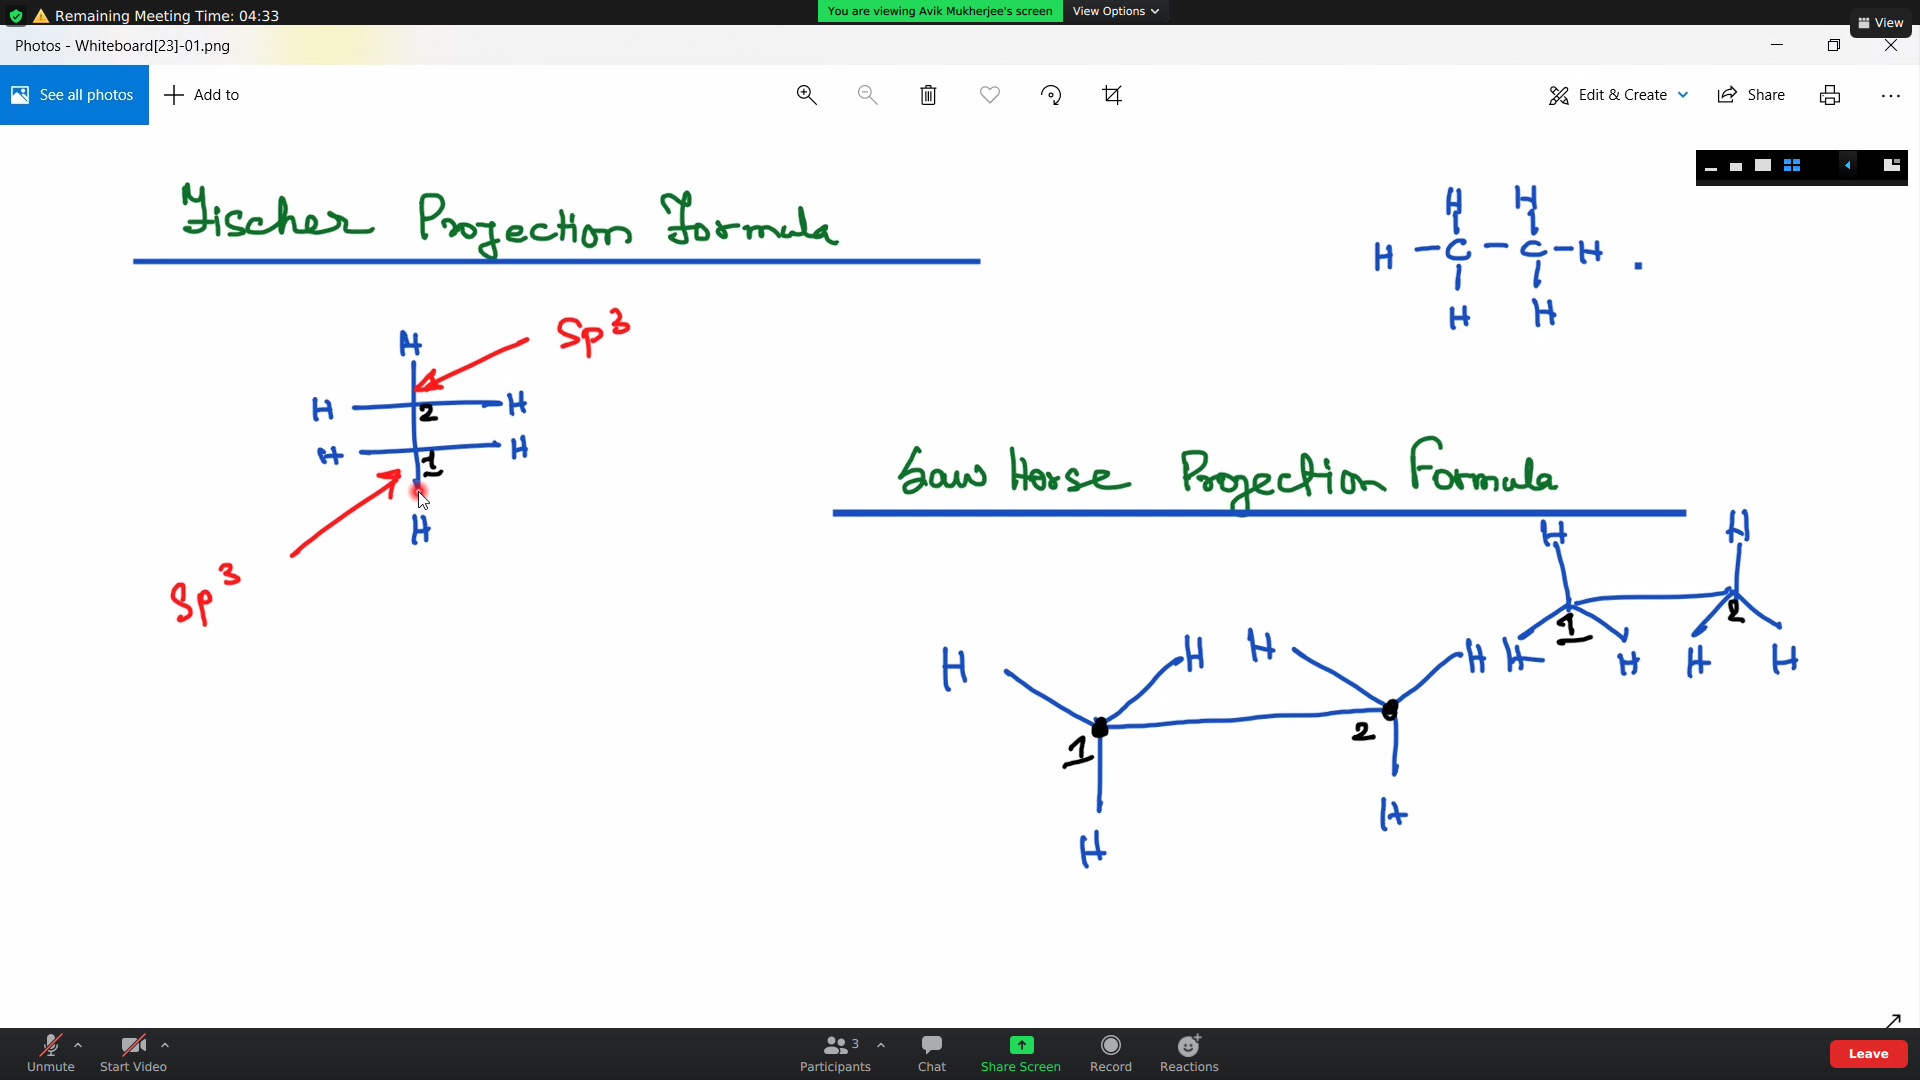 Remaining Meeting Time: 04:33
You are viewing Avik Mukherjee's screen
View Options
View
Photos - Whiteboard[23]-01.png
See all photos
Add to
Edit & Create
Share
Fischer Projection Formula
H H
H - C - C - H .
H H
H
Sp3
H 2 H
H 1 H
H
Sp3
Saw Horse Projection Formula
H H
1 2
H H H H
H H H H
1 2
H H
Unmute
Start Video
Participants 3
Chat
Share Screen
Record
Reactions
Leave